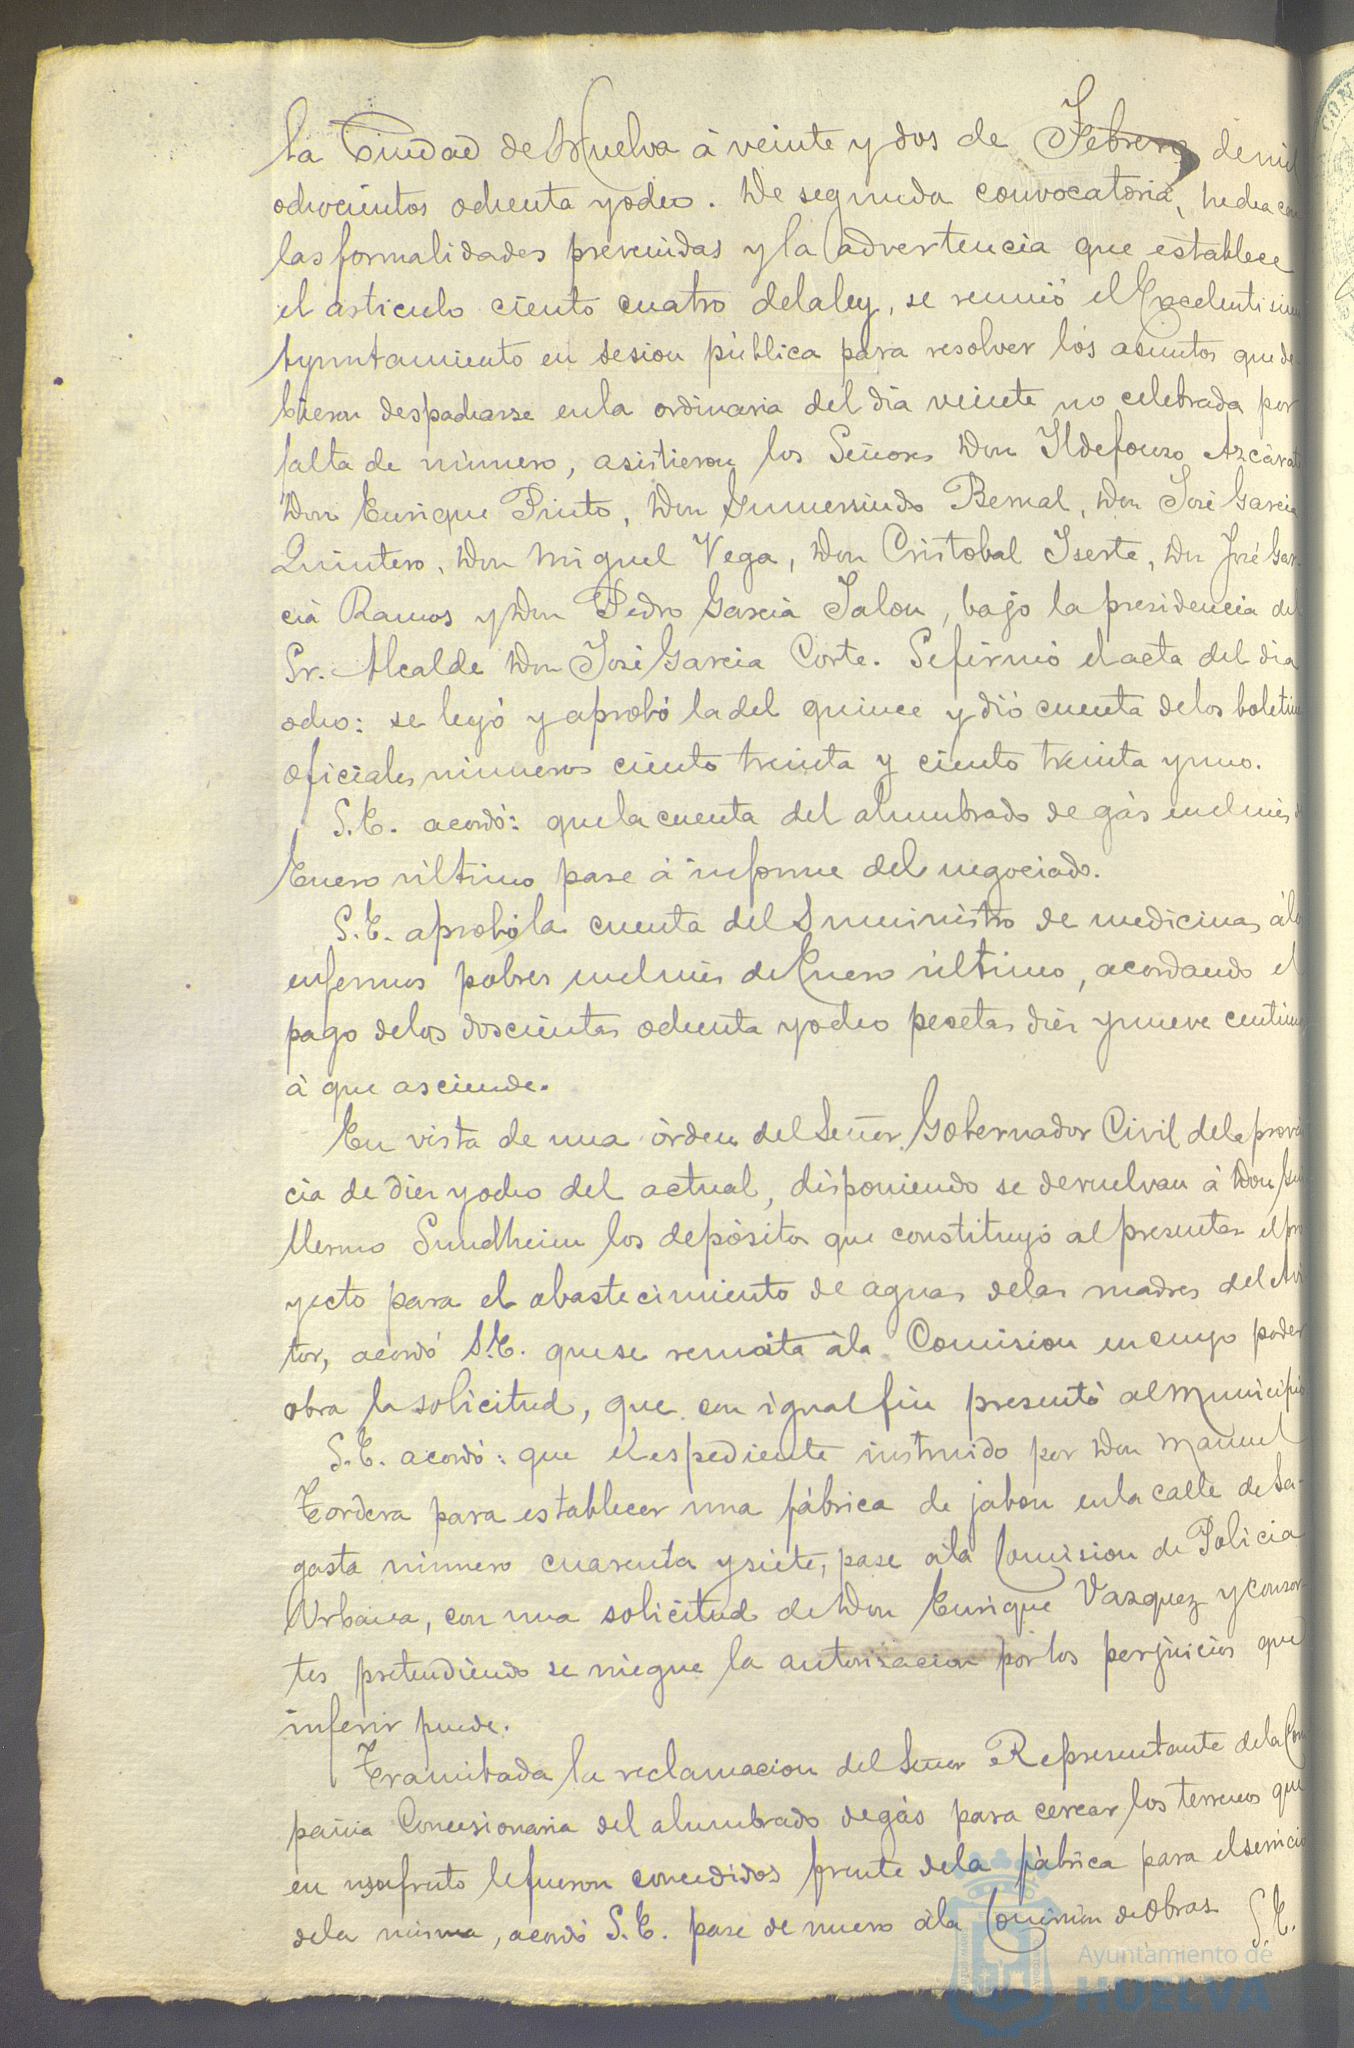 la Ciudad de Huelva á veinte y dos de Febrero de mil
ochocientos ochenta y ocho. De segunda convocatoria, hecha con
las formalidades prevenidas y la advertencia que establece
el articulo ciento cuatro de la ley, se reunió el Excelentisimo
Ayuntamiento en sesion pública para resolver los asuntos que de
bieron despacharse en la ordinaria del dia veinte no celebrada por
falta de número, asistieron los Señores Don Ildefonso Azcárate
Don Enrique Pinto, Don Gumersindo Bernal, Don José Garcia
Quintero, Don Miguel Vega, Don Cristobal Iserte, Don José Gar-
cia Ramos y Don Pedro Garcia Jalon, bajo la presidencia del
Sr. Alcalde Don José Garcia Corte. Se firmó el acta del dia
ocho: se leyó y aprobó la del quince y dió cuenta de los boletines
oficiales números ciento treinta y ciento treinta y uno.
S.E. acordó: que la cuenta del alumbrado de gás en el mes de
Enero último pase á informe del negociado.
S.E. aprobó la cuenta del Suministro de medicinas á los
enfermos pobres en el mes de Enero último, acordando el
pago de los doscientas ochenta y ocho pesetas diez y nueve centimos
á que asciende.
En vista de una órden del Señor Gobernador Civil de la provin
cia de diez y ocho del actual, disponiendo se devuelvan á Don Gui
llermo Sundheim los depósitos que constituyó al presentar el pro
yecto para el abastecimiento de aguas de las madres del Avi
tor, acordó S.E. que se remita á la Comision en cuyo poder
obra la solicitud, que con igual fin presentó al Municipio
S.E. acordó: que el espediente instruido por Don Manuel
Tordera para establecer una fábrica de jabon en la calle de Sa-
gasta número cuarenta y siete, pase á la Comision de Policia
Urbana, con una solicitud de Don Enrique Vazquez y consor-
tes pretendiendo se niegue la autorizacion por los perjuicios que
inferir puede.
Tramitada la reclamacion del Señor Representante de la Com
pañia Concesionaria del alumbrado de gás para cercar los terrenos que
en usufruto le fueron concedidos frente de la fábrica para el servicio
de la misma, acordó S.E. pase de nuevo á la Comision de Obras. S.E.
Ayuntamiento de
HUELVA